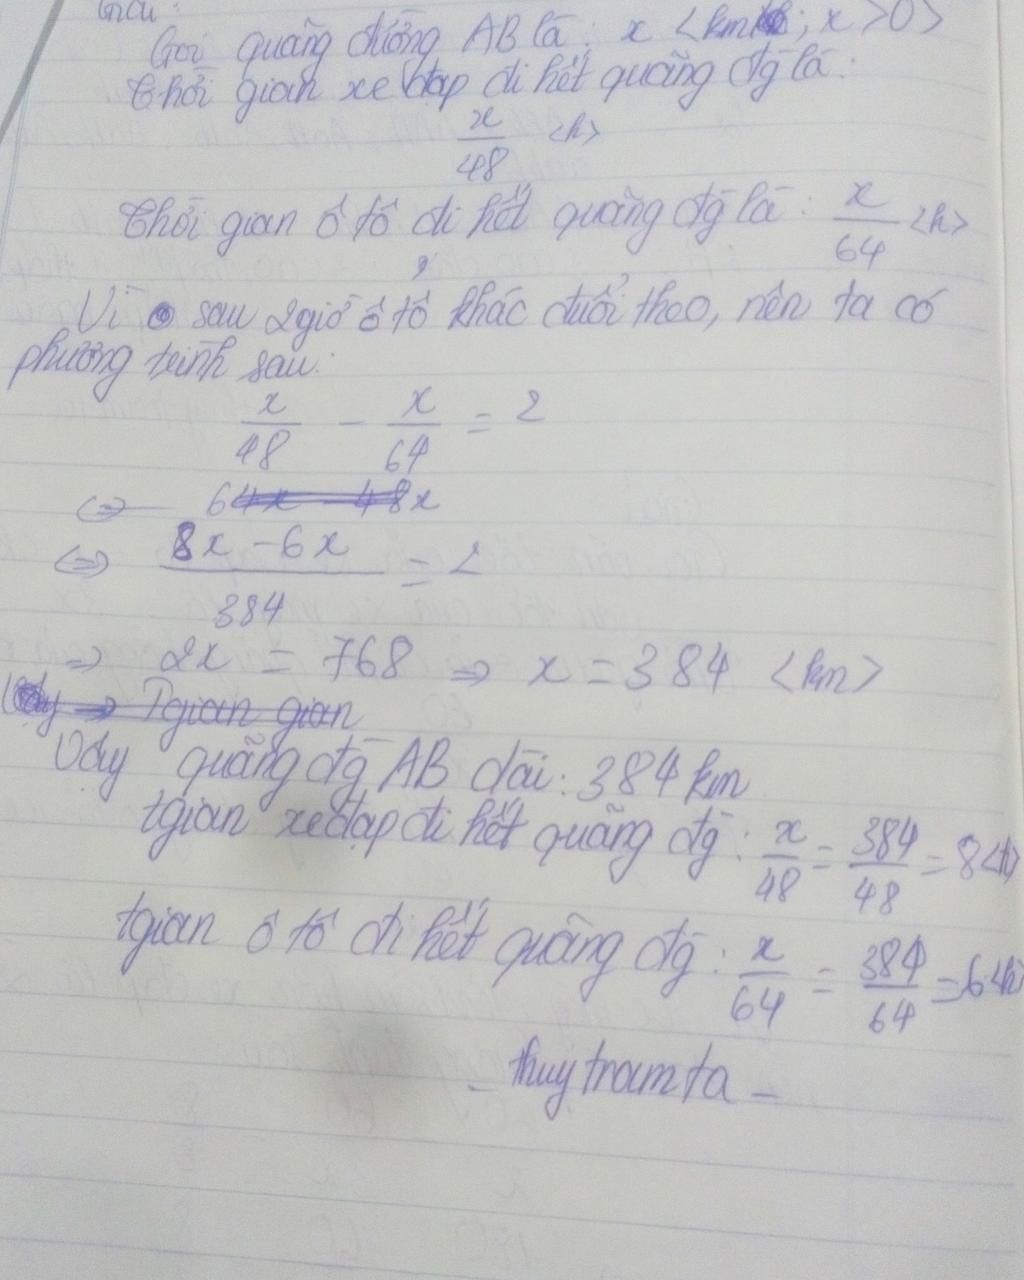 Giải:
Gọi quãng đường AB là: x <km ; x >0>
Thời gian xe đạp đi hết quãng đg là:
x/48 <h>
Thời gian ô tô đi hết quãng đg là: x/64 <h>
Vì sau 2giờ ô tô khác đuổi theo, nên ta có
phương trình sau:
x/48 - x/64 = 2
<=> 64x - 48x
<=> (8x - 6x)/384 = 2
=> 2x = 768 => x = 384 <km>
=> Tgian gian
Vậy quãng đg AB dài: 384 km
tgian xe đạp đi hết quãng đg: x/48 = 384/48 = 8<h>
tgian ô tô đi hết quãng đg: x/64 = 384/64 = 6<h>
- thuytramta -